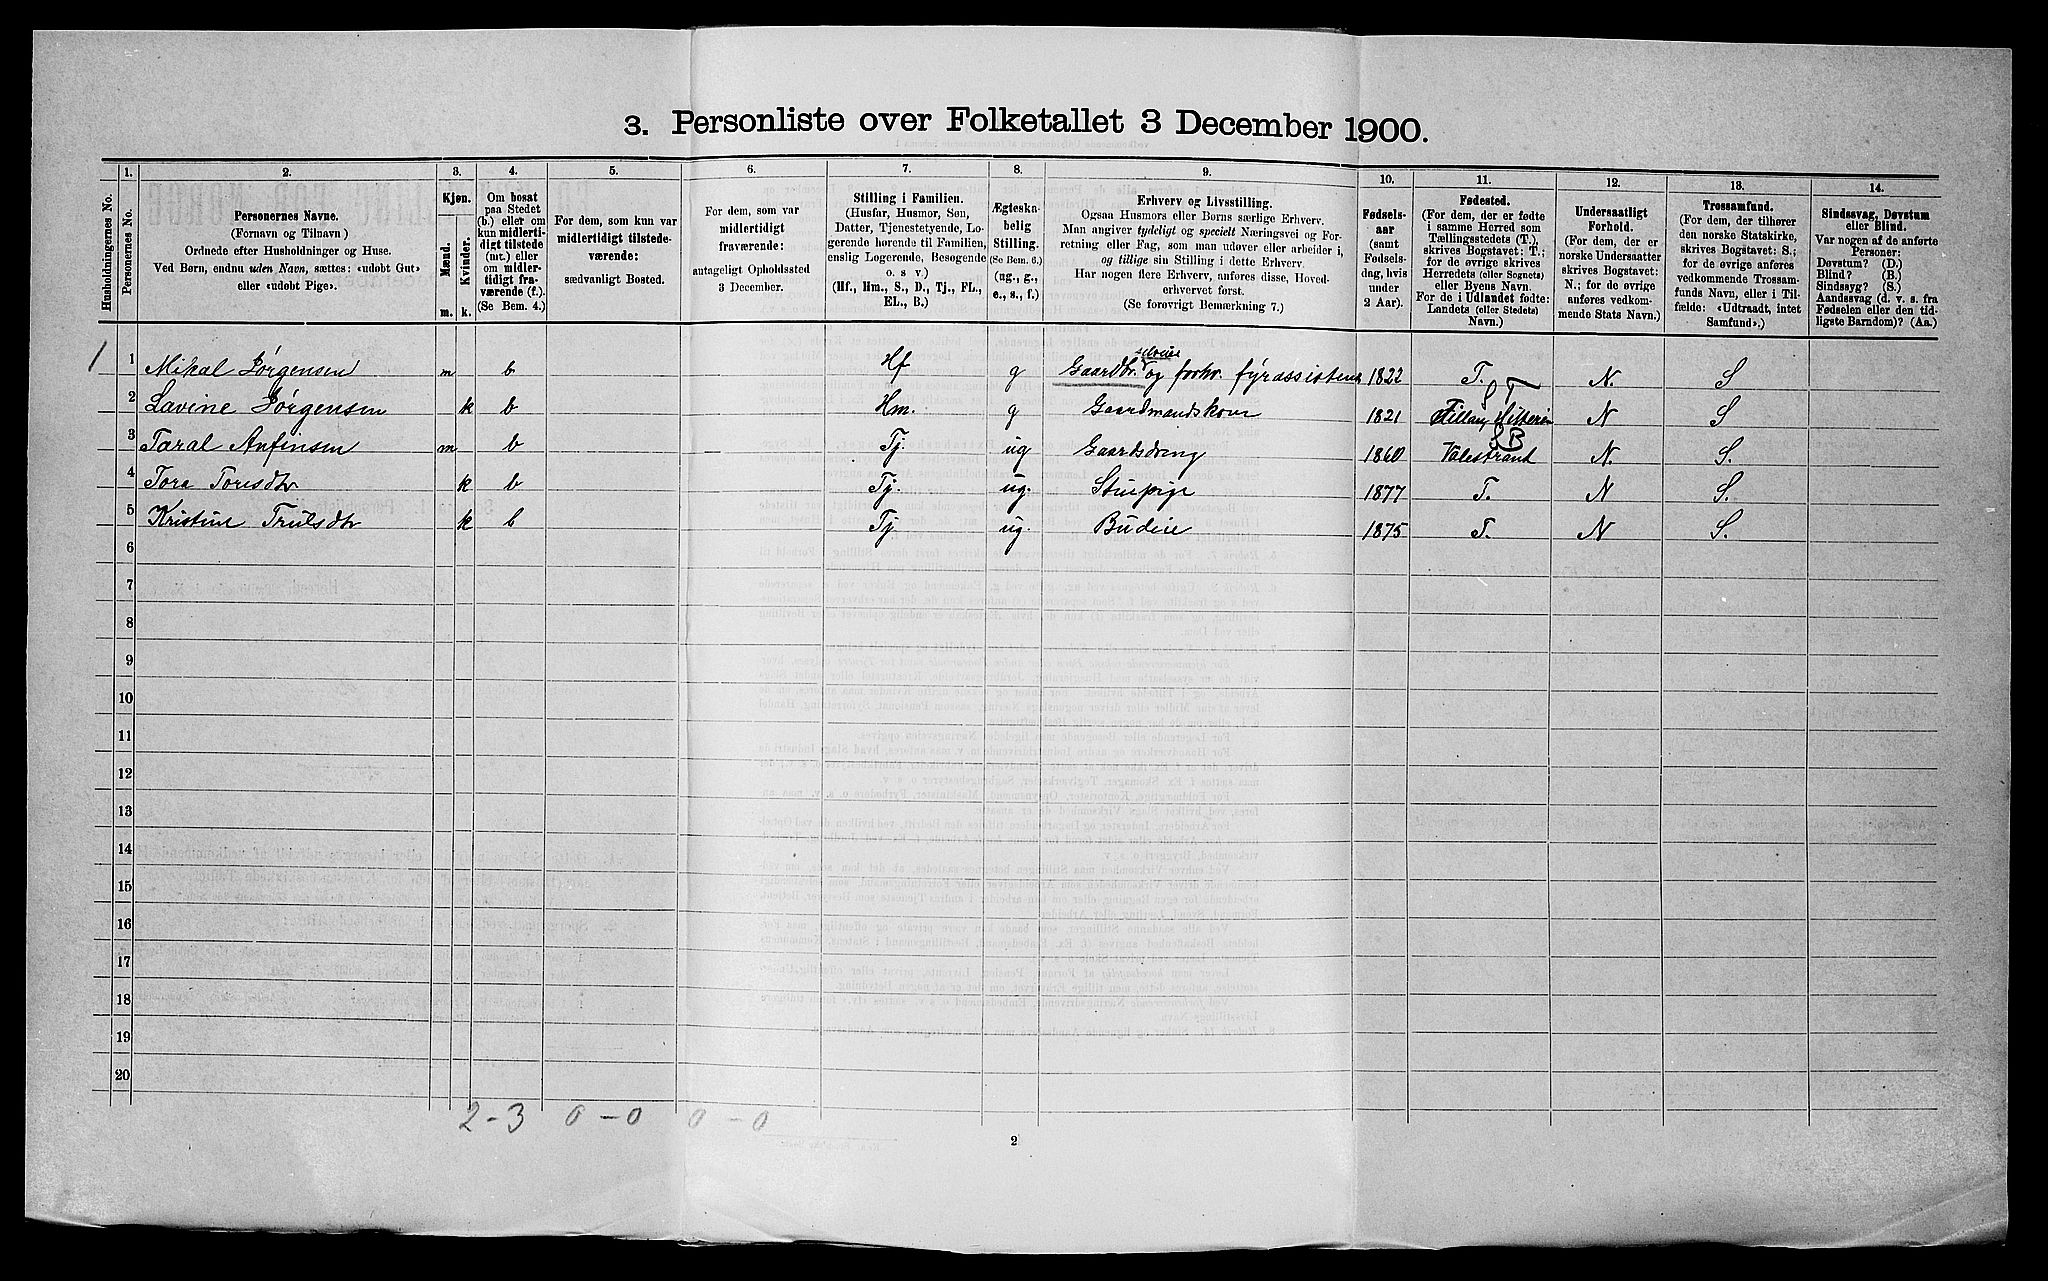 3. Personliste over Folketallet 3 December 1900.
Husholdningernes No.
1.
Personernes No.
2.
Personernes Navne.
(Fornavn og Tilnavn)
Ordnede efter Husholdninger og Huse.
Ved Børn, endnu uden Navn, sættes: «udøbt Gut»
eller «udøbt Pige».
3.
Kjøn.
Mænd.
Kvinder.
m. k.
4.
Om bosat
paa Stedet
(b.) eller om
kun midlerti-
digt tilstede
(mt.) eller
om midler-
tidigt fra-
værende (f.).
(Se Bem. 4.)
5.
For dem, som kun var
midlertidigt tilstede-
værende:
sædvanligt Bosted.
6.
For dem, som var
midlertidigt
fraværende:
antageligt Opholdssted
3 December.
7.
Stilling i Familien.
(Husfar, Husmor, Søn,
Datter, Tjenestetyende, Lo-
gerende hørende til Familien,
enslig Logerende, Besøgende
o. s v.)
(Hf., Hm., S., D., Tj., FL.,
EL., B.)
8.
Ægteska-
belig
Stilling.
(Se Bem. 6.)
(ug., g.,
e., s., f.)
9.
Erhverv og Livsstilling.
Ogsaa Husmors eller Børns særlige Erhverv.
Man angiver tydeligt og specielt Næringsvei og For-
retning eller Fag, som man udøver eller arbeider i,
og tillige sin Stilling i dette Erhverv.
Har nogen flere Erhverv, anføres disse, Hoved-
erhvervet først.
(Se forøvrigt Bemærkning 7.)
10.
Fødsels-
aar
(samt
Fødsels-
dag, hvis
under
2 Aar).
11.
Fødested.
(For dem, der er fødte
i samme Herred som
Tællingsstedets (T.),
skrives Bogstavet: T.;
for de øvrige skrives
Herredets (eller Sognets)
eller Byens Navn.
For de i Udlandet fødte:
Landets (eller Stedets)
Navn.)
12.
Undersaatligt
Forhold.
(For dem, der er
norske Undersaatter
skrives Bogstavet:
N.; for de øvrige
anføres vedkom-
mende Stats Navn.)
13.
Trossamfund.
(For dem, der tilhører
den norske Statskirke,
skrives Bogstavet: S.;
for de øvrige anføres
vedkommende Trossam-
funds Navn, eller i Til-
fælde: «Udtraadt, intet
Samfund».)
14.
Sindssvag, Døvstum
eller Blind.
Var nogen af de anførte
Personer:
Døvstum? (D.)
Blind? (B.)
Sindssyg? (S.)
Aandssvag (d. v. s. fra
Fødselen eller den tid-
ligste Barndom)? (Aa.)
1 1 Mikal Jørgensen m b Hf g Gaardbr. og forhv. fyrassistent 1822 T. N. S
2 Lavine Jørgensen k b Hm. g Gaardmandskone 1821 Fillan, Hitterøn S T N S
3 Taral Anfinsen m b Tj. ug Gaardsdreng 1860 Valestrand SB N. S.
4 Tora Toresdtr k b Tj. ug. Stuepige 1877 T. N S.
5 Kristine Trulsdtr k b Tj ug. Budeie 1875 T. N S.
6
7
8
9
10
11
12
13
14
15
16
17
18
19
20
2-3 0-0 0-0
2